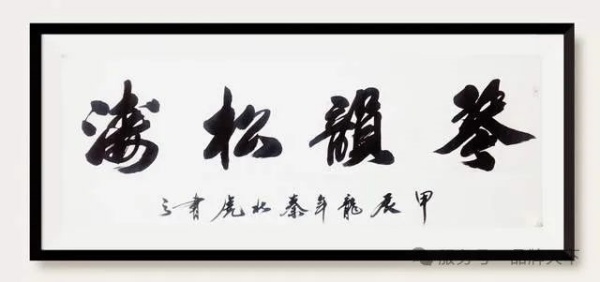 琴韻松濤
甲辰龍年秦水虎書之
服务号 · 品牌天下